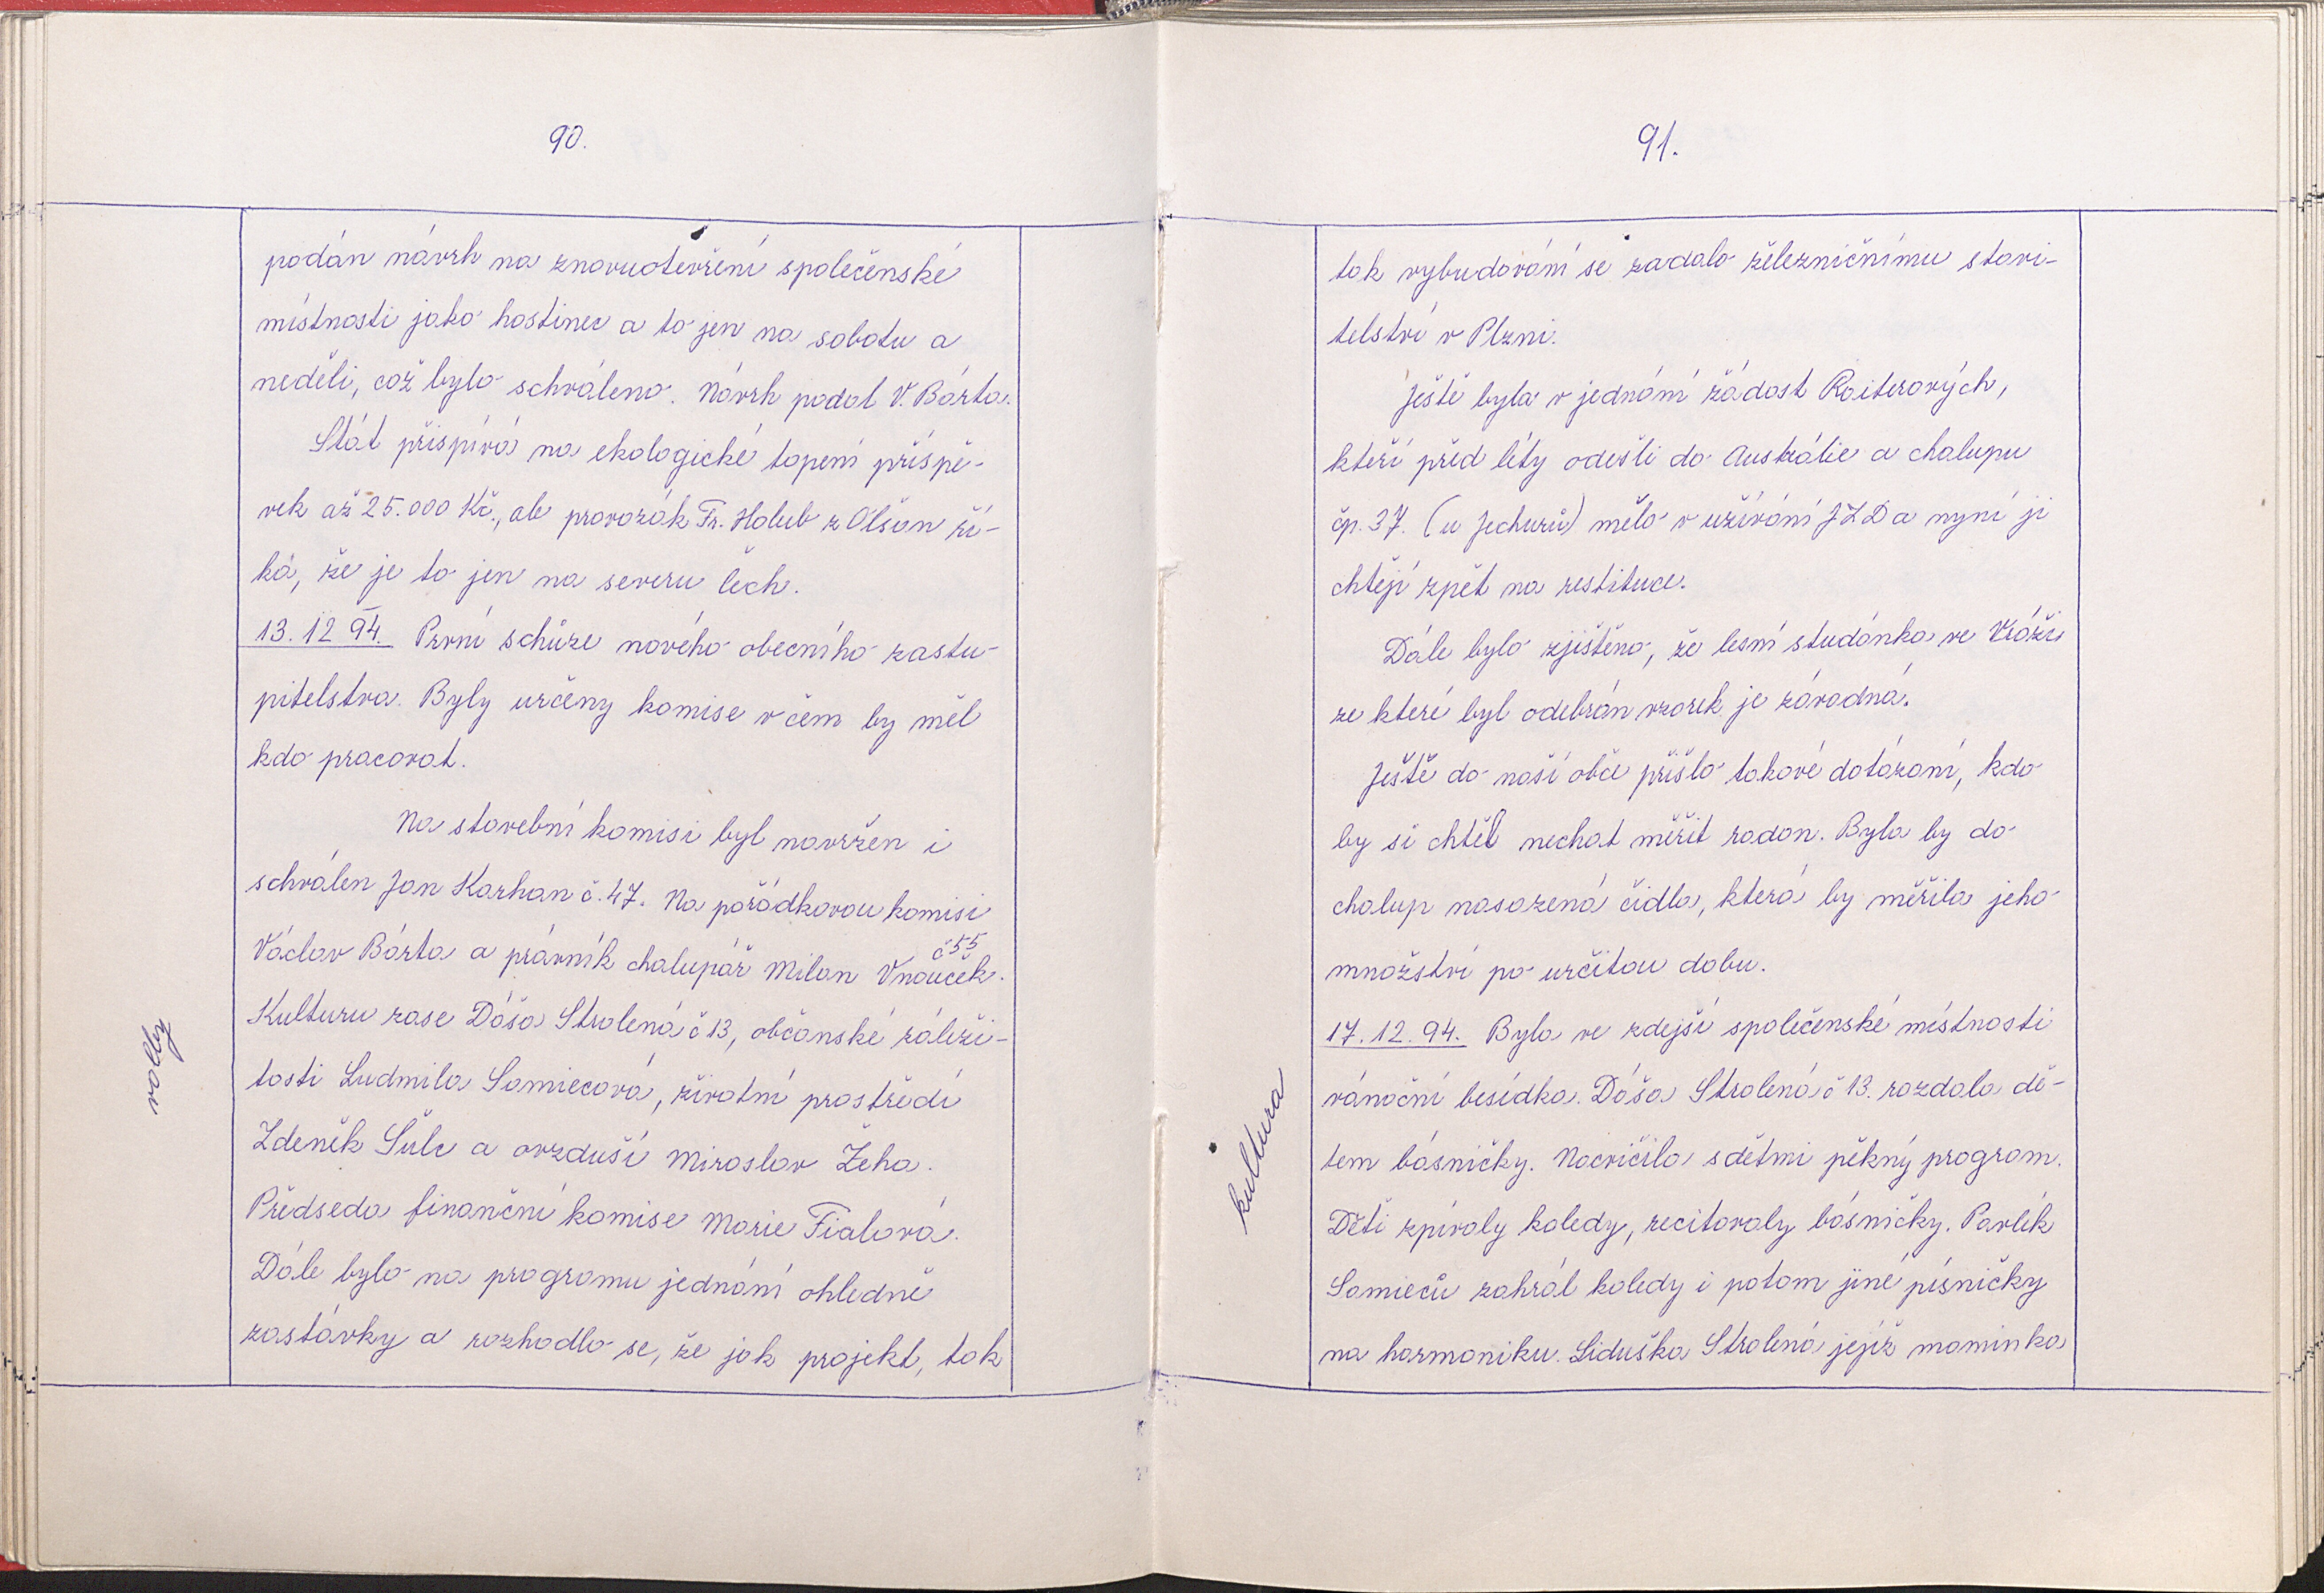 90.
podán návrh na znovuotevření společenské
místnosti jako hostinec a to jen na sobotu a
neděli, což bylo schváleno. Návrh podal V. Bárta.
Stát přispívá na ekologické topení příspě-
vek až 25.000 Kč., ale provozák Fr. Holub z Olšan ří-
ká, že je to jen na severu čech.
13. 12 94. První schůze nového obecního zastu-
pitelstva. Byly určeny komise v čem by měl
kdo pracovat.
Na stavební komisi byl navržen i
schválen Jan Karhan č. 47. Na pořádkovou komisi
č 55
Václav Bárta a právník chalupář Milan Vnouček.
Kulturu zase Dáša Stralená č 13, občanské záleži-
volby
tosti Ludmila Samiecová, životní prostředí
Zdeněk Šulc a ovzduší Miroslav Žeha.
Předseda finanční komise Marie Fialová.
Dále bylo na programu jednání ohledně
zastávky a rozhodlo se, že jak projekt, tak
91.
tak vybudování se zadalo železničnímu stavi-
telství v Plzni.
Ještě byla v jednání žádost Raiterových,
kteří před léty odešli do Austrálie a chalupu
čp. 37. (u Jechurů) mělo v užívání JZD a nyní ji
chtějí zpět na restituce.
Dále bylo zjištěno, že lesní studánka ve Vráži
ze které byl odebrán vzorek je závadná.
Ještě do naší obce přišlo takové dotázaní, kdo
by si chtěl nechat měřit radon. Byla by do
chalup nasazená čidla, která by měřila jeho
množství po určitou dobu.
17. 12. 94. Byla ve zdejší společenské místnosti
kultura
vánoční besídka. Dáša Stralená č 13. rozdala dě-
tem básničky. Nacvičila s dětmi pěkný program.
Děti zpívaly koledy, recitovaly básničky. Pavlík
Samieců zahrál koledy i potom jiné písničky
na harmoniku. Liduška Stralená jejíž maminka